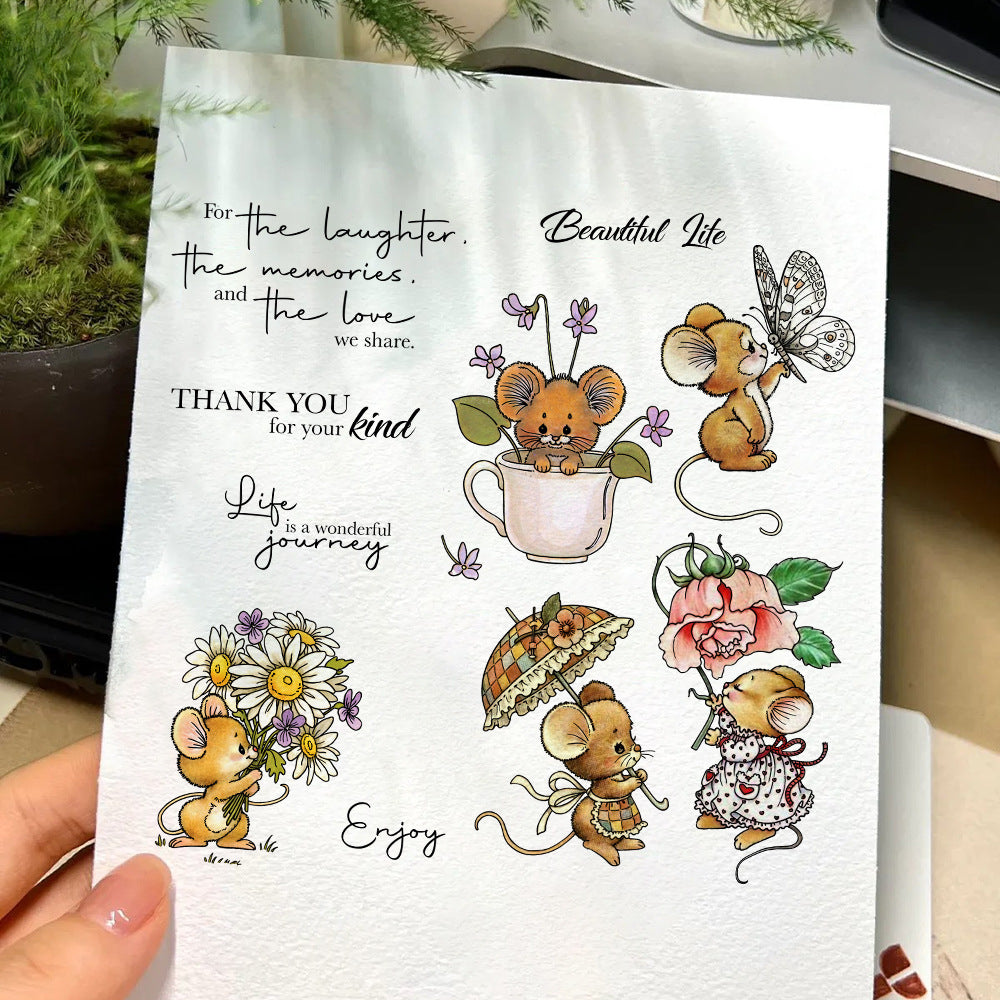 For the laughter,
the memories,
and the love
we share.
Beautiful Life
THANK YOU
for your kind
Life
is a wonderful
journey
Enjoy